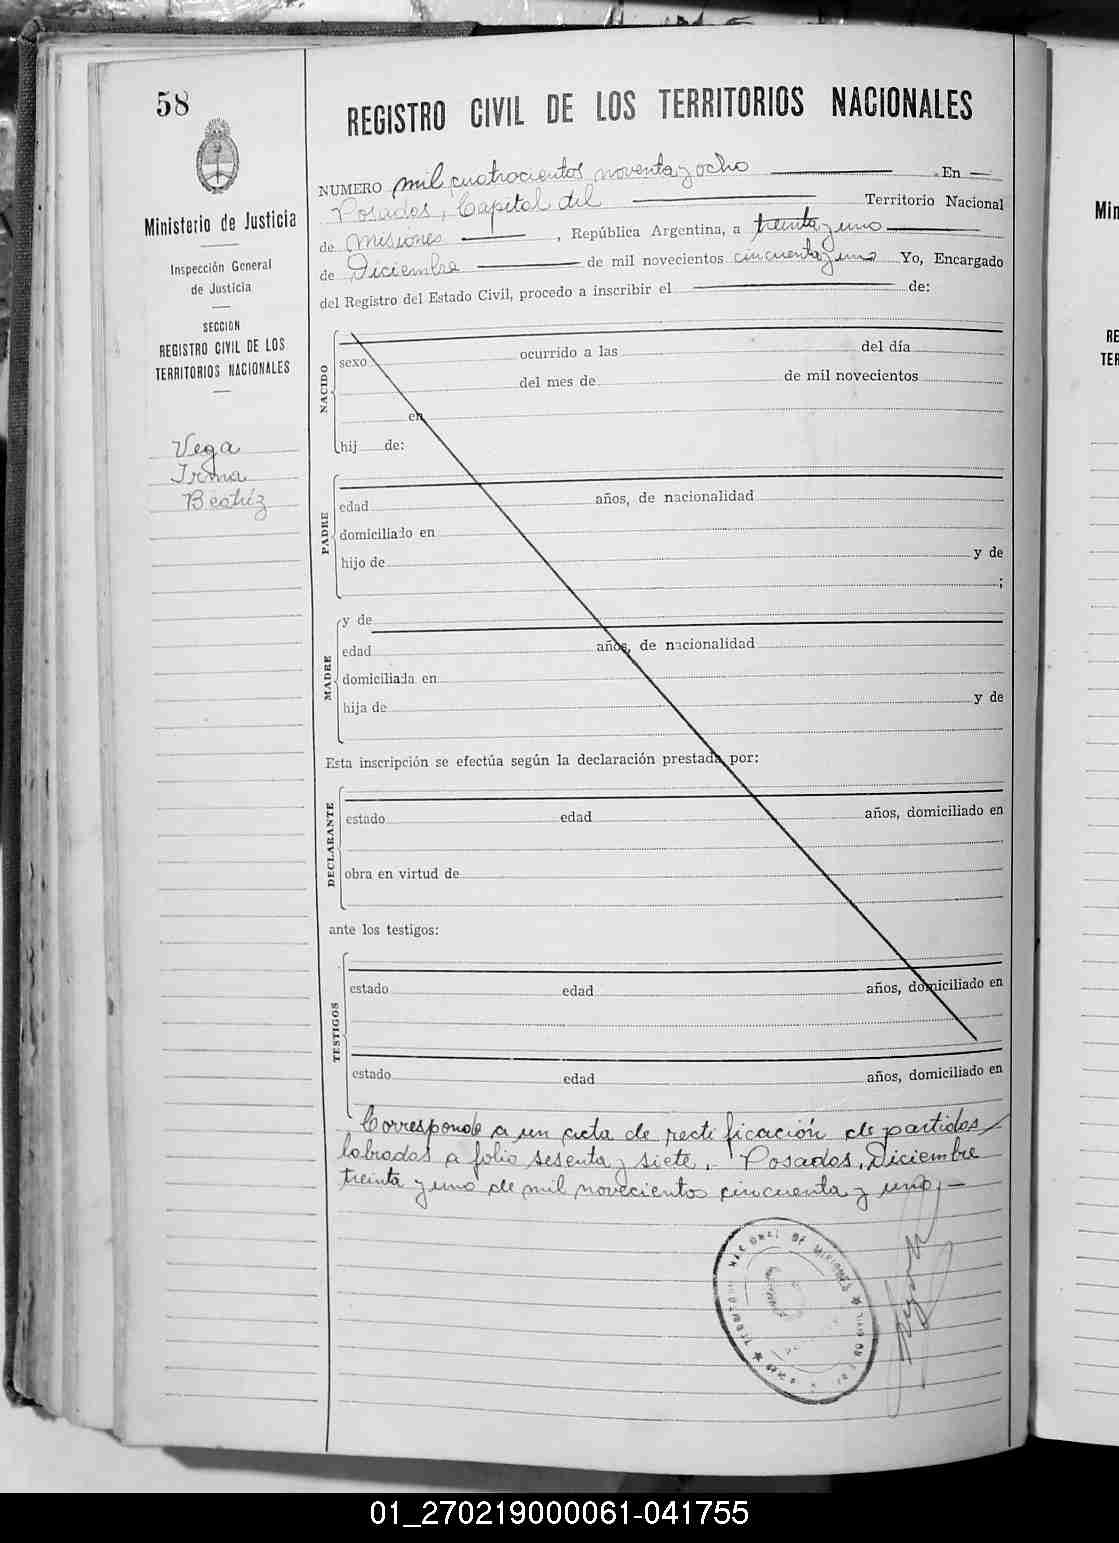 58
REGISTRO CIVIL DE LOS TERRITORIOS NACIONALES
Ministerio de Justicia
Inspección General
de Justicia
SECCION
REGISTRO CIVIL DE LOS
TERRITORIOS NACIONALES
Vega
Irma
Beatríz
NUMERO mil cuatrocientos noventa y ocho En
Posadas, Capital del Territorio Nacional
de Misiones, República Argentina, a treinta y uno
de Diciembre de mil novecientos cincuenta y uno Yo, Encargado
del Registro del Estado Civil, procedo a inscribir el de:
NACIDO
sexo ocurrido a las del día
del mes de de mil novecientos
en
hij de:
PADRE
edad años, de nacionalidad
domiciliado en
hijo de y de
;
MADRE
y de
edad años, de nacionalidad
domiciliada en
hija de y de
Esta inscripción se efectúa según la declaración prestada por:
DECLARANTE
estado edad años, domiciliado en
obra en virtud de
ante los testigos:
TESTIGOS
estado edad años, domiciliado en
estado edad años, domiciliado en
Corresponde a un acta de rectificación de partidas
labradas a folio sesenta y siete. Posadas, Diciembre
treinta y uno de mil novecientos cincuenta y uno.—
NACIONAL DE MISIONES
Min
RE
TER
01_270219000061-041755